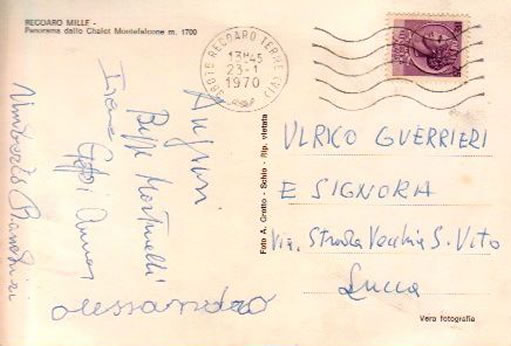 RECOARO MILLE -
Panorama dallo Chalet Montefalcone m. 1700
36076 RECOARO TERME (VI)
13H45
23-1
1970
Auguri
Beppe Martinelli
Irene
Umberto Bianchini
alessandro
Foto A. Grotto - Schio - Rip. vietata
ULRICO GUERRIERI
E SIGNORA
Via. Strada Vecchia S. Vito
Lucca
Vera fotografia